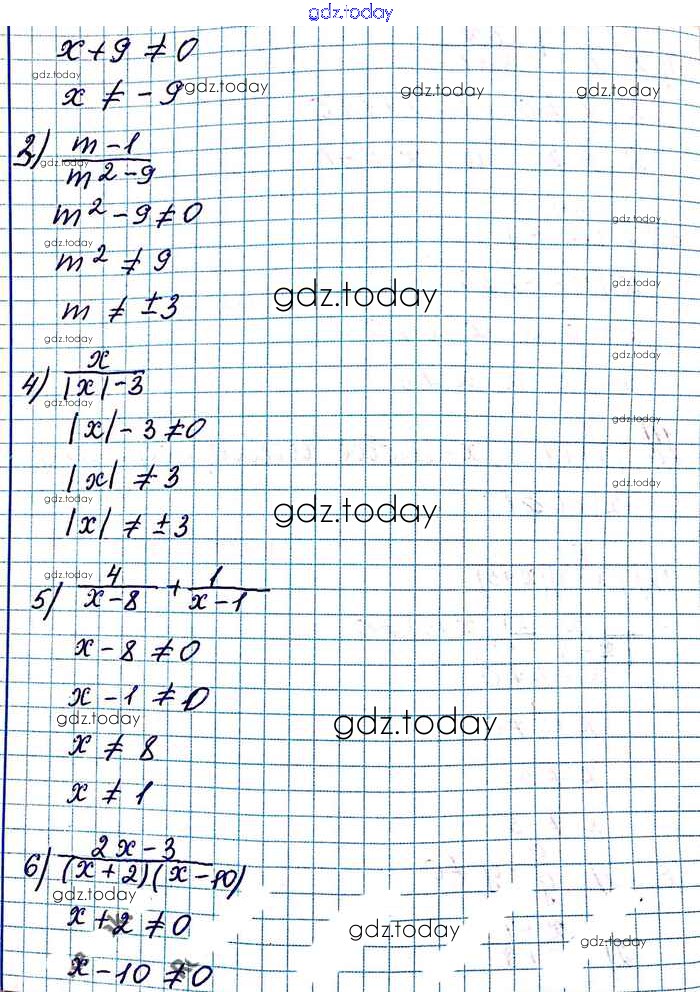 gdz.today
x + 9 ≠ 0
gdz.today
x ≠ - 9 gdz.today gdz.today gdz.today
3) m - 1 / m² - 9
gdz.today
m² - 9 ≠ 0 gdz.today
gdz.today
m² ≠ 9
gdz.today gdz.today
m ≠ ±3
gdz.today gdz.today
4) x / |x| - 3
gdz.today gdz.today
|x| - 3 ≠ 0
gdz.today
|x| ≠ 3 gdz.today
gdz.today gdz.today
|x| ≠ ±3
gdz.today
5) 4 / x - 8 + 1 / x - 1
x - 8 ≠ 0
x - 1 ≠ 0
gdz.today gdz.today
x ≠ 8
x ≠ 1
6) 2x - 3 / (x + 2)(x - 10)
gdz.today
x + 2 ≠ 0 gdz.today gdz.today
x - 10 ≠ 0